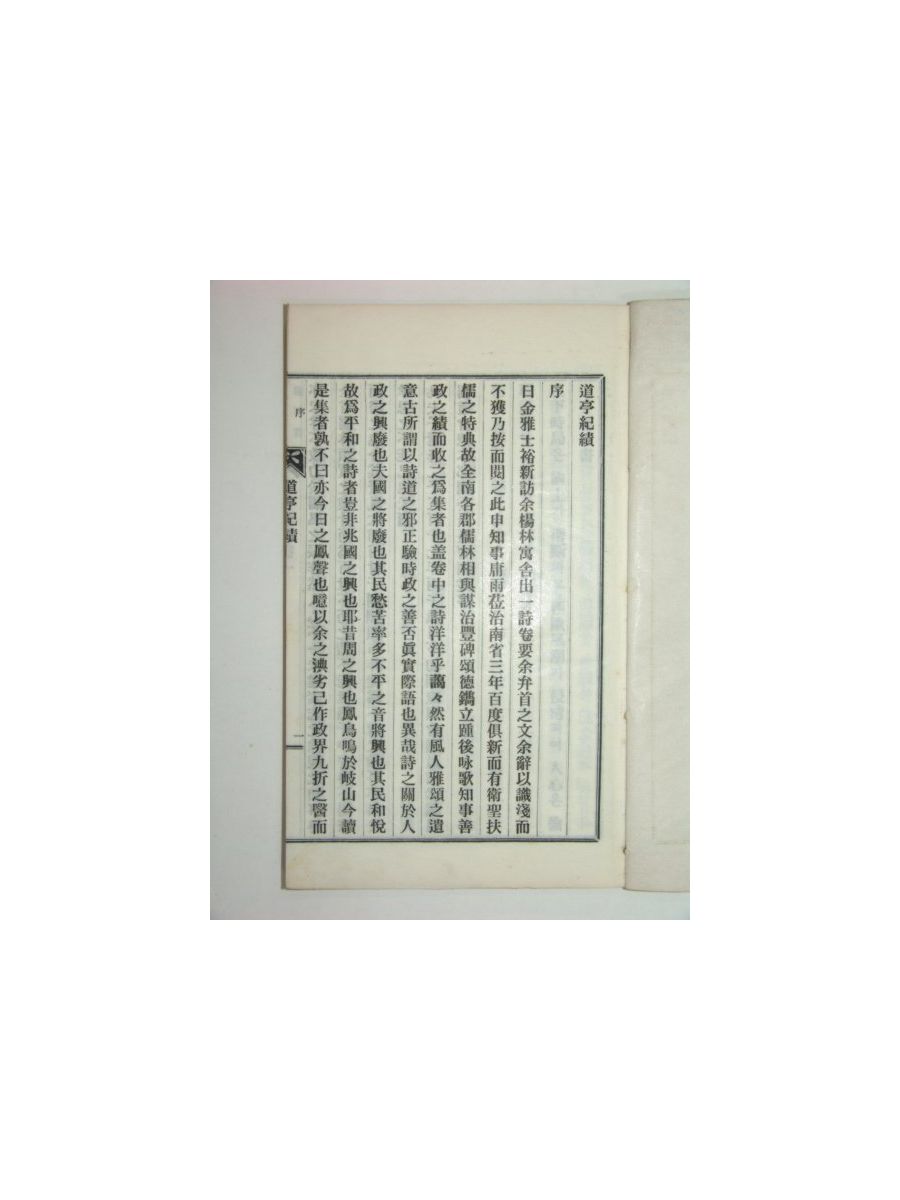 道亨紀績
序
日金雅士裕新訪余楊林寓舍出一詩卷要余弁首之文余辭以識淺而
不獲乃按而閱之此申知事庸雨莅治南省三年百度俱新而有衛聖扶
儒之特典故全南各郡儒林相與謀治豐碑頌德鐫立踵後咏歌知事善
政之績而收之爲集者也盖卷中之詩洋洋乎藹々然有風人雅頌之遺
意古所謂以詩道之邪正驗時政之善否眞實際語也異哉詩之關於人
政之興廢也夫國之將廢也其民愁苦率多不平之音將興也其民和悅
故爲平和之詩者豈非兆國之興也耶昔周之興也鳳鳥鳴於岐山今讀
是集者孰不曰亦今日之鳳聲也噫以余之淟劣己作政界九折之醫而
序
道亨紀績
一